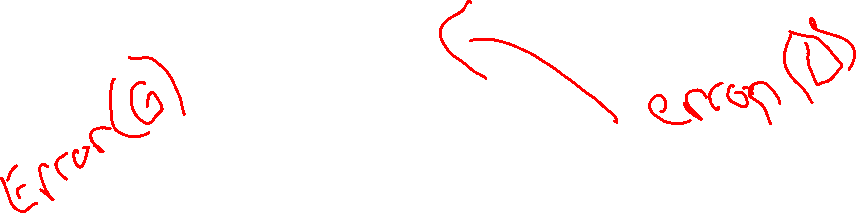 Error(G)
error(D)